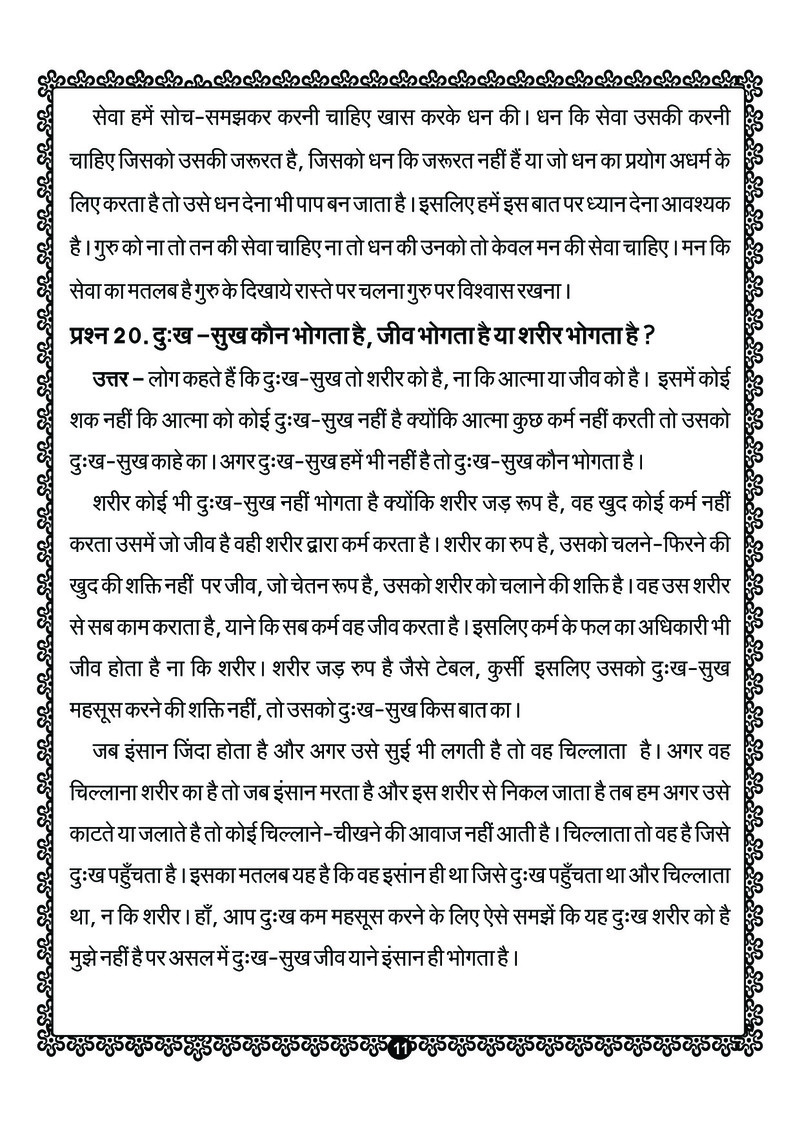 सेवा हमें सोच-समझकर करनी चाहिए खास करके धन की। धन कि सेवा उसकी करनी
चाहिए जिसको उसकी जरूरत है, जिसको धन कि जरूरत नहीं हैं या जो धन का प्रयोग अधर्म के
लिए करता है तो उसे धन देना भी पाप बन जाता है। इसलिए हमें इस बात पर ध्यान देना आवश्यक
है। गुरु को ना तो तन की सेवा चाहिए ना तो धन की उनको तो केवल मन की सेवा चाहिए। मन कि
सेवा का मतलब है गुरु के दिखाये रास्ते पर चलना गुरु पर विश्वास रखना।
प्रश्न 20. दुःख –सुख कौन भोगता है, जीव भोगता है या शरीर भोगता है ?
उत्तर – लोग कहते हैं कि दुःख-सुख तो शरीर को है, ना कि आत्मा या जीव को है। इसमें कोई
शक नहीं कि आत्मा को कोई दुःख-सुख नहीं है क्योंकि आत्मा कुछ कर्म नहीं करती तो उसको
दुःख-सुख काहे का। अगर दुःख-सुख हमें भी नहीं है तो दुःख-सुख कौन भोगता है।
शरीर कोई भी दुःख-सुख नहीं भोगता है क्योंकि शरीर जड़ रूप है, वह खुद कोई कर्म नहीं
करता उसमें जो जीव है वही शरीर द्वारा कर्म करता है। शरीर का रुप है, उसको चलने-फिरने की
खुद की शक्ति नहीं पर जीव, जो चेतन रूप है, उसको शरीर को चलाने की शक्ति है। वह उस शरीर
से सब काम कराता है, याने कि सब कर्म वह जीव करता है। इसलिए कर्म के फल का अधिकारी भी
जीव होता है ना कि शरीर। शरीर जड़ रुप है जैसे टेबल, कुर्सी इसलिए उसको दुःख-सुख
महसूस करने की शक्ति नहीं, तो उसको दुःख-सुख किस बात का।
जब इंसान जिंदा होता है और अगर उसे सुई भी लगती है तो वह चिल्लाता है। अगर वह
चिल्लाना शरीर का है तो जब इंसान मरता है और इस शरीर से निकल जाता है तब हम अगर उसे
काटते या जलाते है तो कोई चिल्लाने-चीखने की आवाज नहीं आती है। चिल्लाता तो वह है जिसे
दुःख पहुँचता है। इसका मतलब यह है कि वह इसांन ही था जिसे दुःख पहुँचता था और चिल्लाता
था, न कि शरीर। हाँ, आप दुःख कम महसूस करने के लिए ऐसे समझें कि यह दुःख शरीर को है
मुझे नहीं है पर असल में दुःख-सुख जीव याने इंसान ही भोगता है।
11